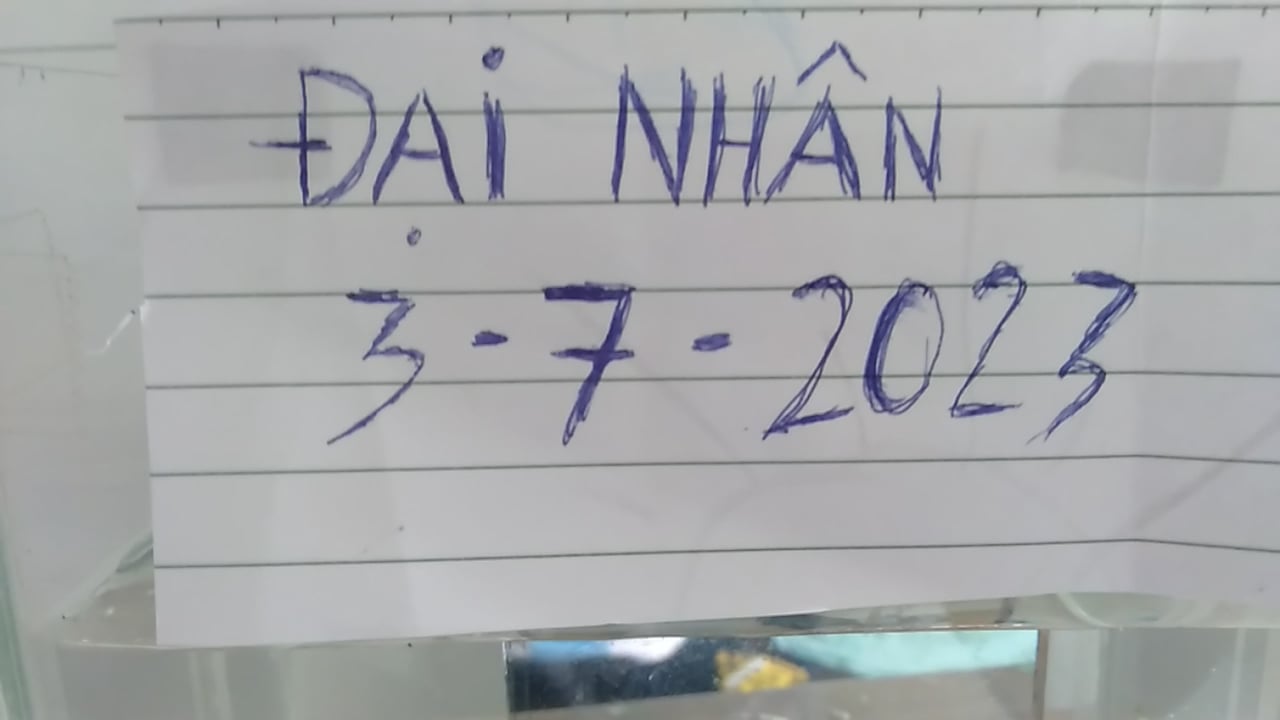 ĐẠi NHÂN
3-7-2023